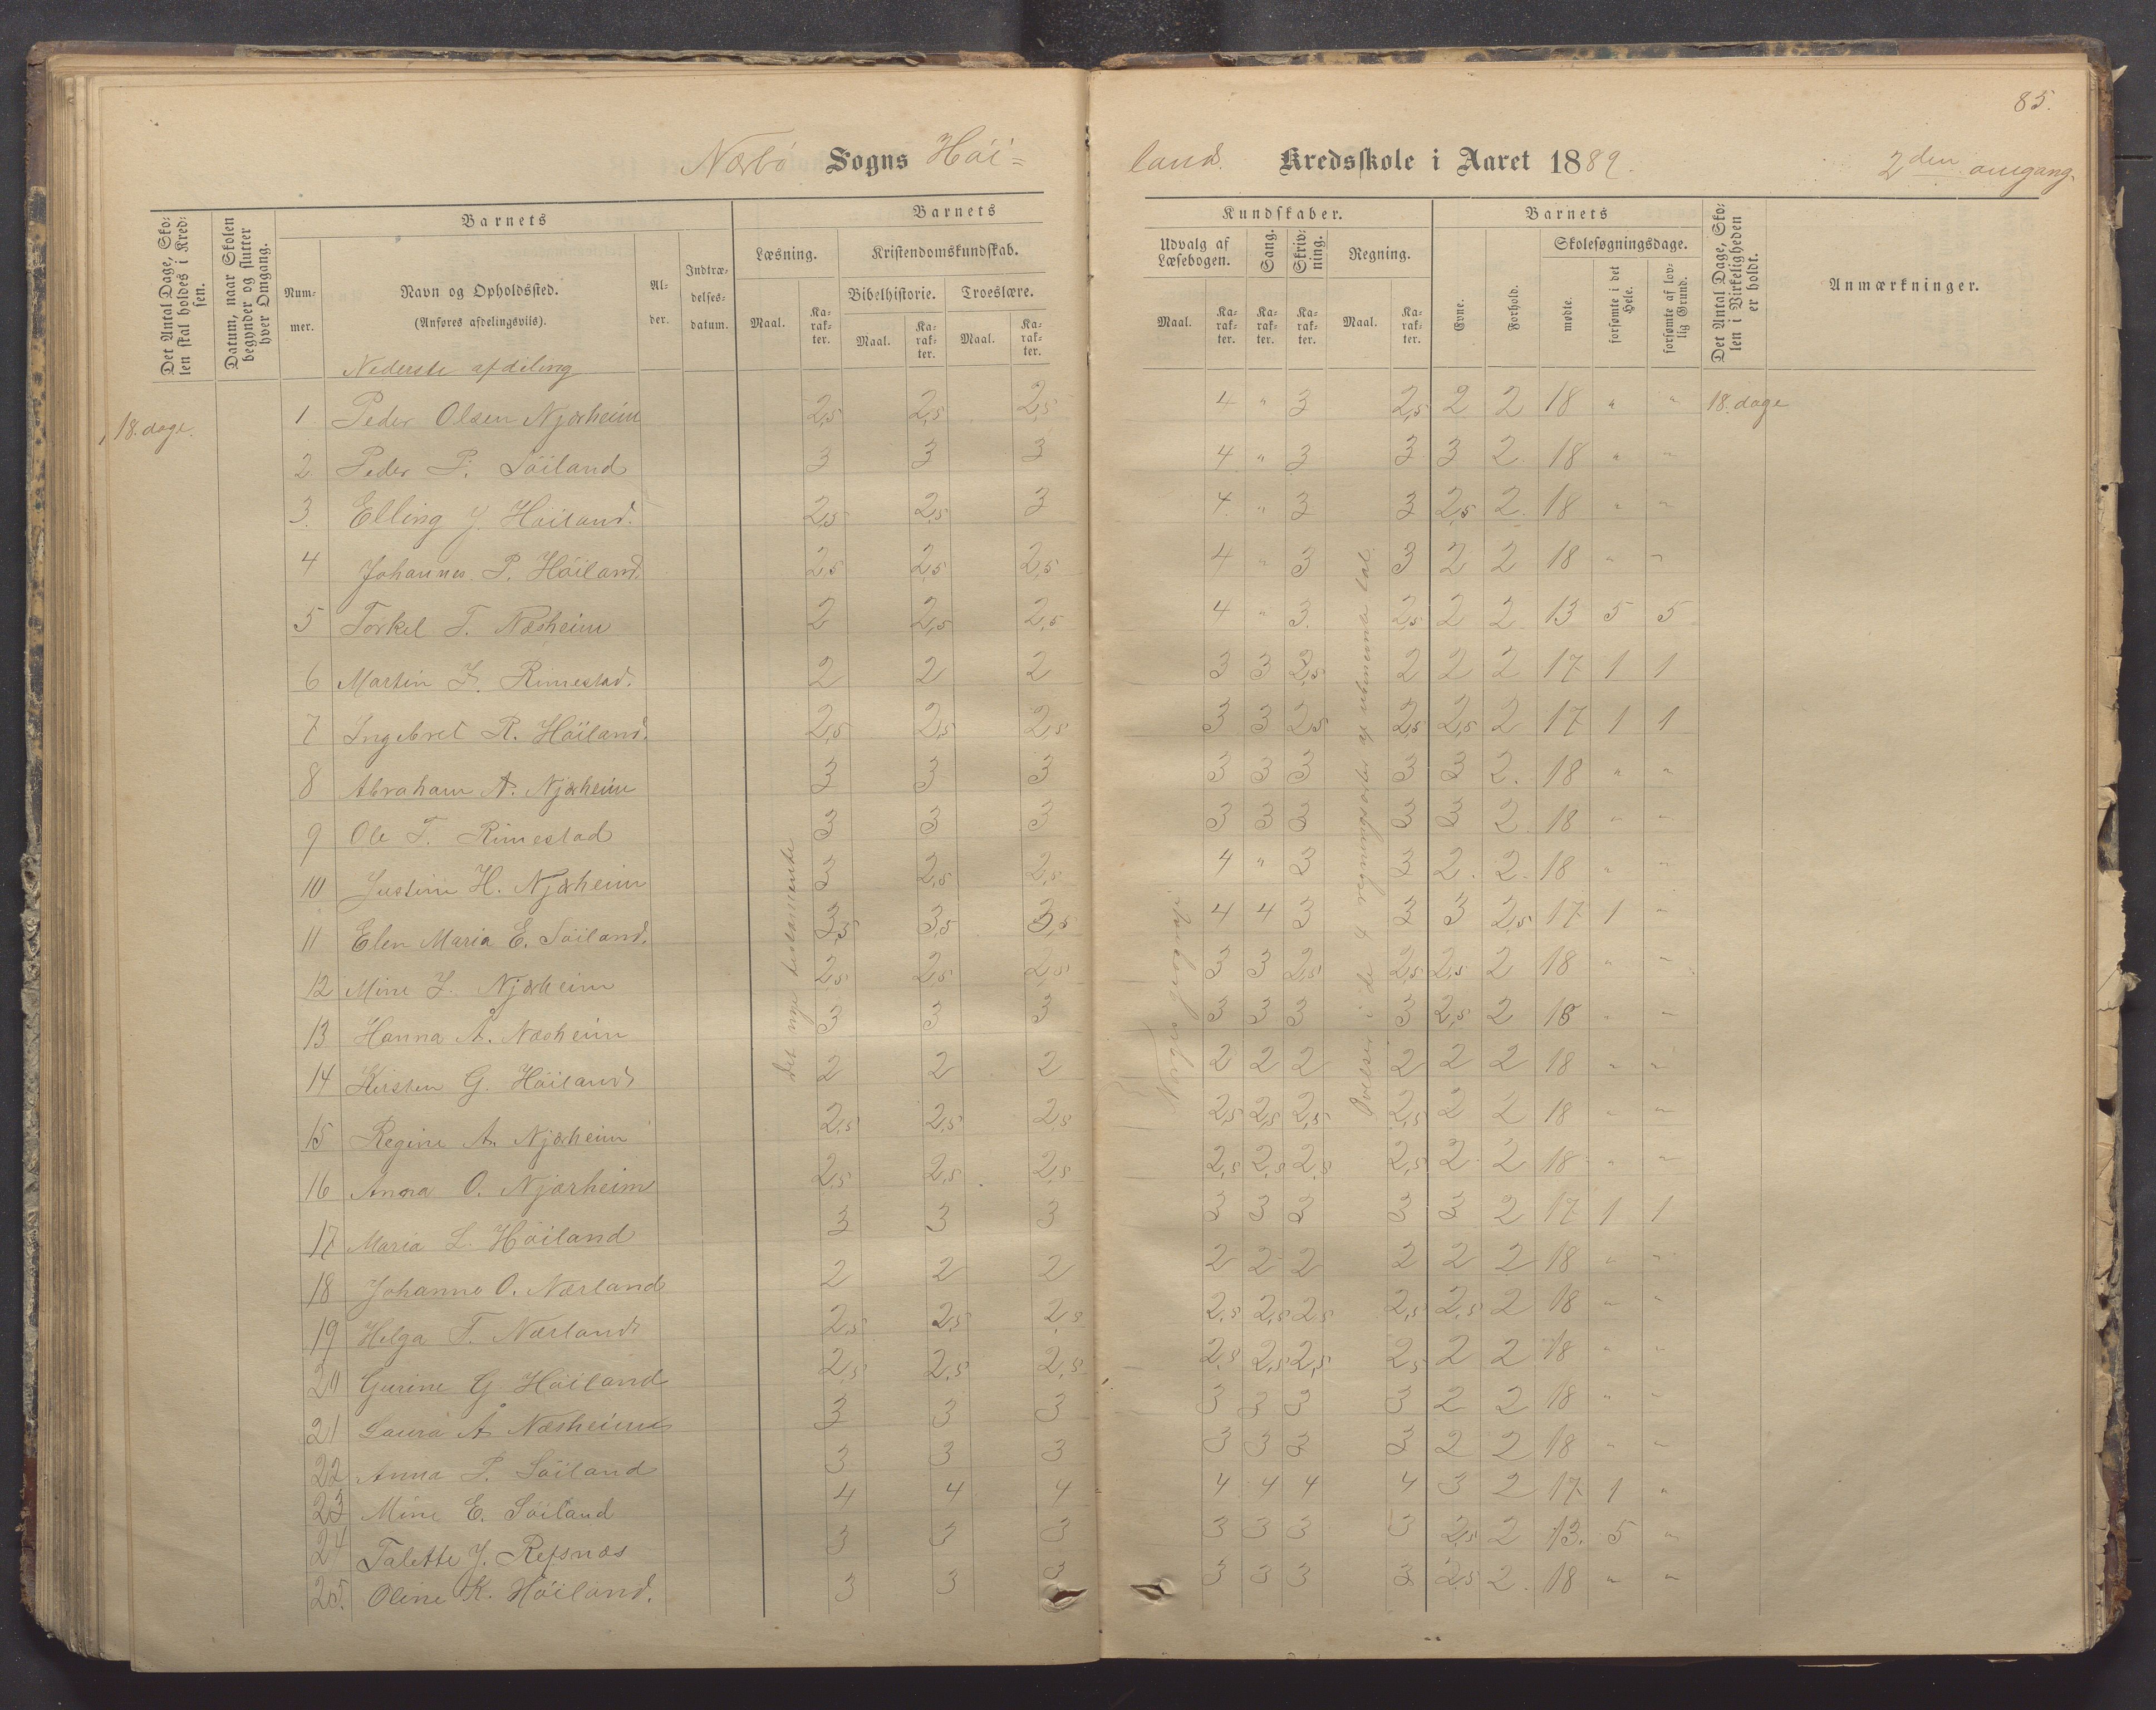 85.
Nærbø Sogns Höi= land. Kredsskole i Aaret 1889. 2den omgang.
Det Antal Dage, Skolen skal holdes i Kredsen.
Datum, naar Skolen begynder og slutter hver Omgang.
Barnets
Nummer.
Navn og Opholdssted.
(Anføres afdelingsviis).
Alder.
Indtrædelsesdatum.
Barnets Kundskaber.
Læsning.
Maal. Karakter.
Kristendomskundskab.
Bibelhistorie.
Maal. Karakter.
Troeslære.
Maal. Karakter.
Udvalg af Læsebogen.
Maal. Karakter.
Sang.
Karakter.
Skrivning.
Karakter.
Regning.
Maal. Karakter.
Barnets
Evne.
Forhold.
Skolesøgningsdage.
mødte.
forsømte i det Hele.
forsømte af lovlig Grund.
Det Antal Dage, Skolen i Virkeligheden er holdt.
Anmærkninger.
Nederste afdeling
18. dage. 1 Peder Olsen Njærheim 2,5 2,5 2,5 4 " 3 2,5 2 2 18 " " 18. dage
2 Peder P. Söiland 3 3 3 4 " 3 3 3 2 18 " "
3. Elling J. Höiland. 2,5 2,5 3 4 " 3 3 2,5 2 18 " "
4 Johannes P. Höiland. 2,5 2,5 2,5 4 " 3 3 2 2 18 " "
5 Torkel T. Næsheim 2 2,5 2,5 4 " 3. 2,5 2 2 13 5 5
6 Martin J. Rimestad. 2 2 2 3 3 2,5 2 2 2 17 1 1
7 Ingebret R. Höiland. 2,5 2,5 2,5 3 3 2,5 2,5 2,5 2 17 1 1
8 Abraham A. Njærheim 3 3 3 3 3 3 3 3 2. 18 " "
9 Ole T. Rimestad 3 3 3 3 3 3 3 3 2 18 " "
10 Justine H. Njærheim 3 2,5 2,5 4 " 3 3 2. 2. 18 " "
11 Elen Maria E. Söiland. 3,5 3,5 3,5 4 4 3 3 3 2,5 17 1 "
12 Mine J. Njærheim 2,5 2,5 2,5 3 3 2,5 2,5 2,5 2 18 " "
13 Hanna A. Næsheim 3 3 3 3 3 3 3 2,5 2 18 " "
14 Kirsten G. Höiland 2 2 2 2 2 2 2 2 2 18 " "
15 Regine A. Njærheim 2,5 2,5 2,5 2,5 2,5 2,5 2,5 2 2 18 " "
16 Anna O. Njærheim 2,5 2,5 2,5 2,5 2,5 2,5 2,5 2 2 18 " "
17 Maria L. Höiland 3 3 3 3 3 3 3 3 2 17 1 1
18 Johanne O. Nærland 2 2 2 2 2 2 2 2 2 18 " "
19 Helga T. Nærland 2,5 2,5 2,5 2,5 2,5 2,5 2,5 2,5 2 18 " "
20 Gurine G Höiland 2,5 2,5 2,5 2,5 2,5 2,5 2,5 2 2 18 " "
21 Laura A Næsheim 3 3 3 3 3 3 3 2 2 18 " "
22 Anna P. Söiland 3 3 3 3 3 3 3 2 2 18 " "
23 Mine E. Söiland 4 4 4 4 4 4 4 3 2 17 1 "
24 Talette J. Refsnæs 3 3 3 3 3 3 3 2,5 2 13. 5 "
25. Oline K. Höiland. 3 3 3 3 3 3 3 2,5 2. 18 " "
Det nye testamente
Norges geografi
Övelser i de 4 regningsarter af ubenævnte tal.